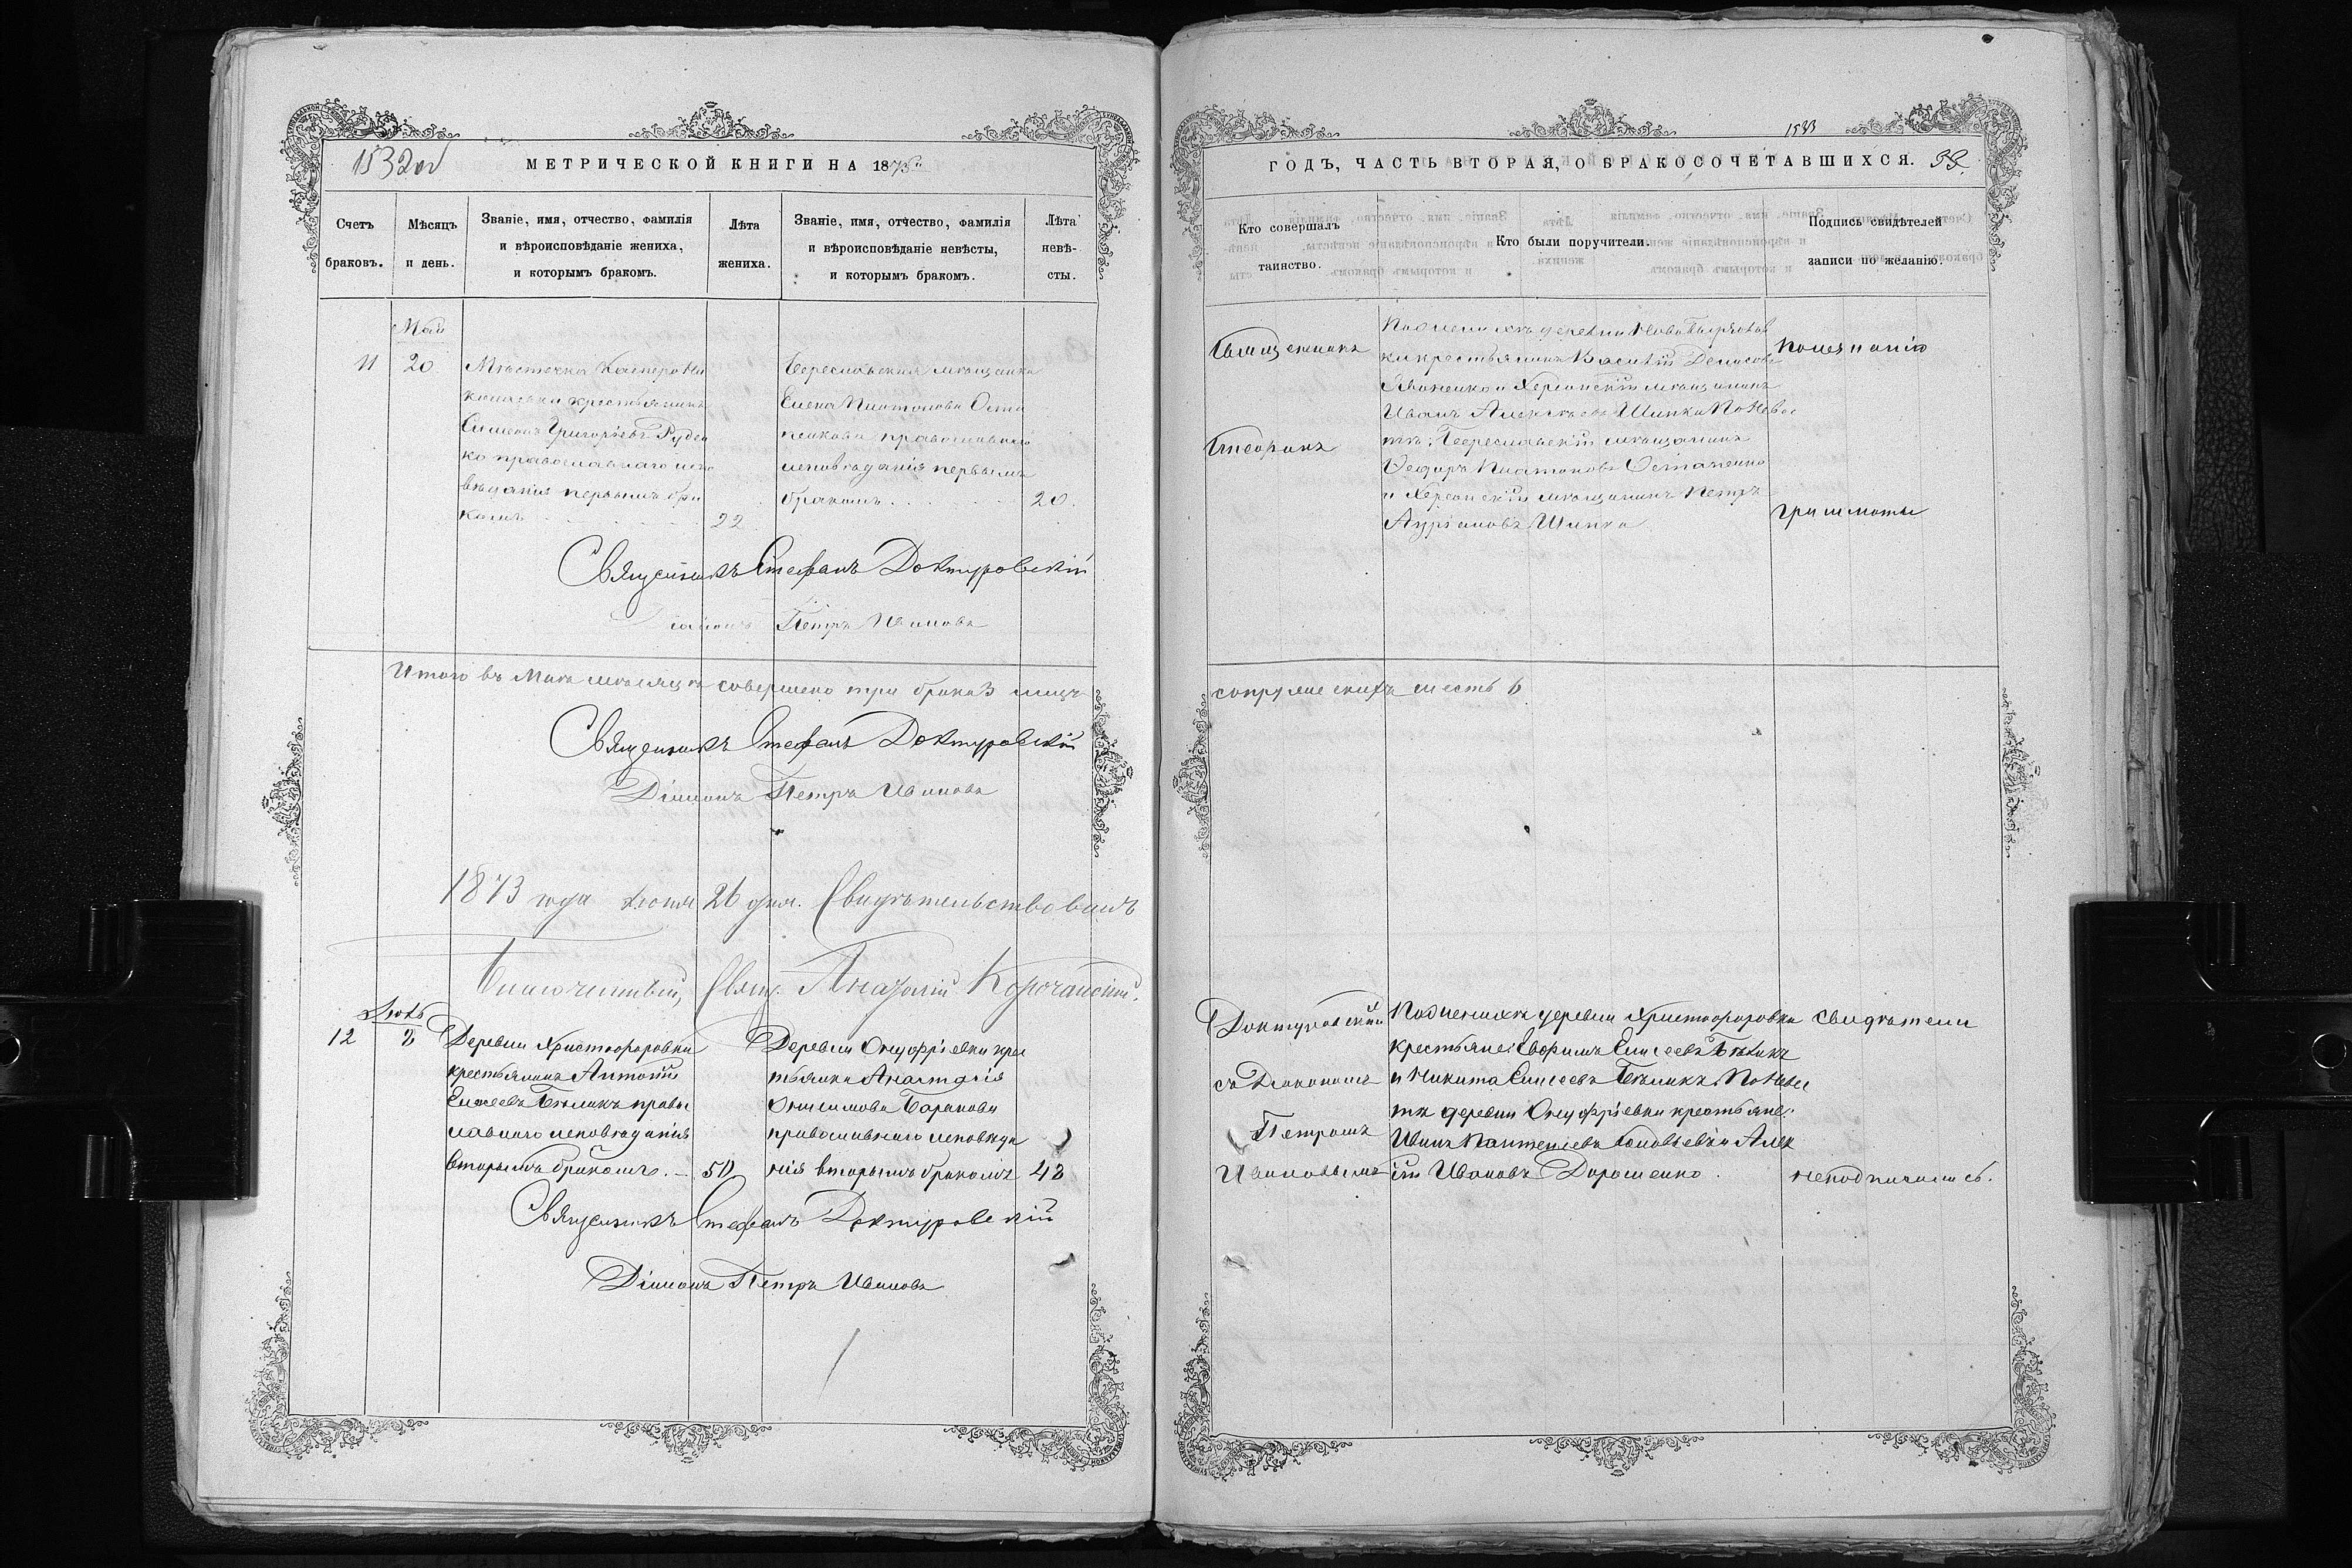 1532об
МЕТРИЧЕСКОЙ КНИГИ НА 1873й
Счетъ браковъ.
Мѣсяцъ и день.
Званіе, имя, отчество, фамилія
и вѣроисповѣданіе жениха,
и которымъ бракомъ.
Лѣта жениха.
Званіе, имя, отчество, фамилія
и вѣроисповѣданіе невѣсты,
и которымъ бракомъ.
Лѣта невѣ-
сты.
Май
11
20
Мѣстечка КаспероКи
колаевки крестьянинъ
Симеонъ Григорьевъ Руден
ко православнаго испо
вѣданія первымъ бра
комъ
22
Бериславская мѣщанка
Елена Платонова Оста
пенкова православнаго
исповѣданія первымъ
бракомъ
20.
Священникъ Стефанъ Доктуровскій
Петръ Ивановъ
Итого въ Маѣ мѣсяцѣ совершено три брака 3 лицъ
Священникъ Стефанъ Доктуровскій
Діаконъ Петръ Ивановъ
1873 года Іюня 26 дня. Свидѣтельствовалъ
Благочинный, Свящ. Корчанскій.
12
Деревни Христофоровки
крестьянинъ Антоній
Елисеевъ Бѣликъ право
славнаго исповѣданія
вторымъ бракомъ.
50
Деревни Онуфріевки крес
тьянка Анастасія
Онисимова Баранова
православнаго исповѣда
нія вторымъ бракомъ
48
Священникъ Стефанъ Доктуровскій
Діаконъ Петръ Ивановъ
1533
ГОДЪ, ЧАСТЬ ВТОРАЯ, О БРАКОСОЧЕТАВШИХСЯ.
Кто совершалъ
таинство.
Кто были поручители.
Подпись свидѣтелей
записи по желанію.
Священникъ
Стефанъ
По женихѣ деревни
ки крестьянинъ Василій Денисовъ
и Херсонскій мѣщанинъ
Иванъ Алексѣевъ Шипка По Невѣс
тѣ: Бериславскій мѣщанинъ
Ѳедоръ Платоновъ Остапенко
и Херсонскій мѣщанинъ Петръ
Шипка
грамоты
супружескихъ шесть 6
Доктуровскій
съ Діакономъ
Петромъ
Ивановымъ
По женихѣ деревни Христофоровки
крестьяне: Ефимъ Елисеевъ Бѣликъ
и Никита Елисеевъ Бѣликъ По Невѣс
тѣ деревни Онуфріевки крестьяне:
Иванъ Пантелеевъ и Алек
ѣй Ивановъ Дорошенко.
свидѣтели
неподписались.